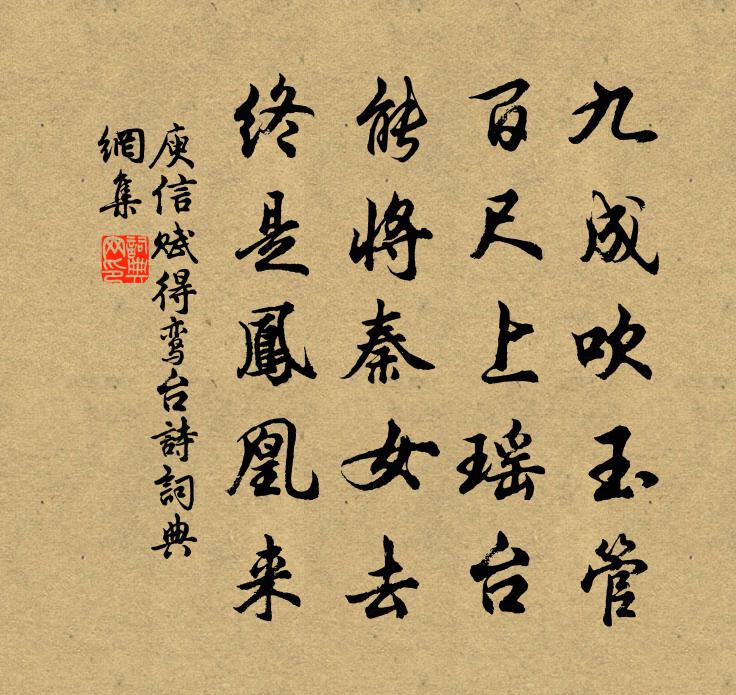 九成吹玉管
百尺上瑶台
能将秦女去
终是鳳凰来
庾信赋得鸾台詩詞典
網集
詞典
网印